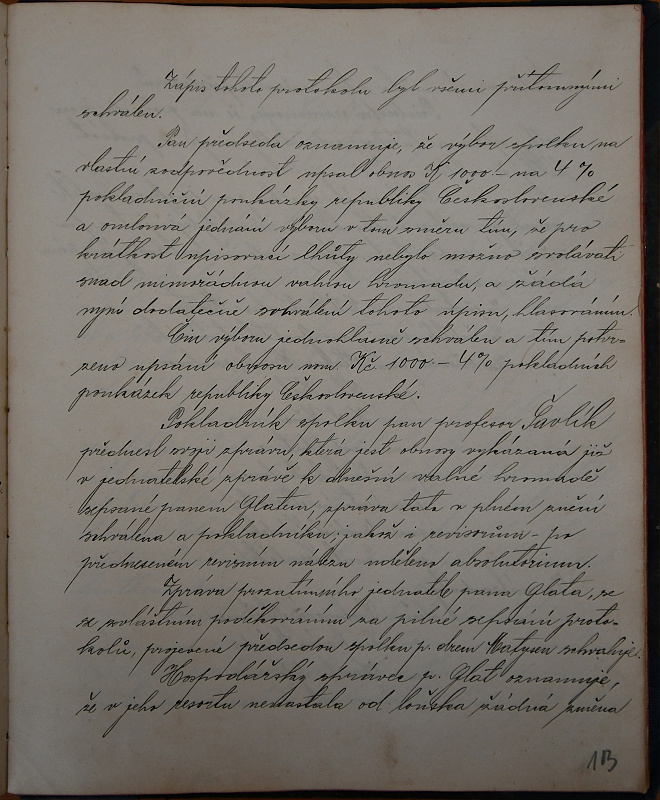 Zápis tohoto protokolu byl všemi přítomnými
schválen.
Pan předseda oznamuje, že výbor spolku na
vlastní zodpovědnost upsal obnos Kč 1000.- na 4%
pokladniční poukázky republiky Československé
a omlouvá jednání výboru v tom směru tím, že pro
krátkost upisovací lhůty nebylo možno svolávati
snad mimořádnou valnou hromadu, a žádá
nyní dodatečné schválení tohoto úpisu, hlasováním.
Čin výboru jednohlasně schválen a tím potvr-
zeno upsání obnosu nom. Kč 1000.- 4% pokladních
poukázek republiky Československé.
Pokladník spolku pan profesor Pavlík
přednesl svoji zprávu, která jest obnosy vykázaná již
v jednatelské zprávě k dnešní valné hromadě
sepsané panem Glatem, zpráva tato v plném znění
schválena a pokladníku, jakož i revisorům - po
předneseném revisním nálezu uděleno absolutorium.
Zpráva prozatímního jednatele pana Glata, se
se zvláštním poděkováním za pilné sepsání proto-
kolů, projevené předsedou spolku p. drem Matysem schvaluje.
Hospodářský správce p. Glat oznamuje,
že v jeho resortu nenastala od loňska žádná změna